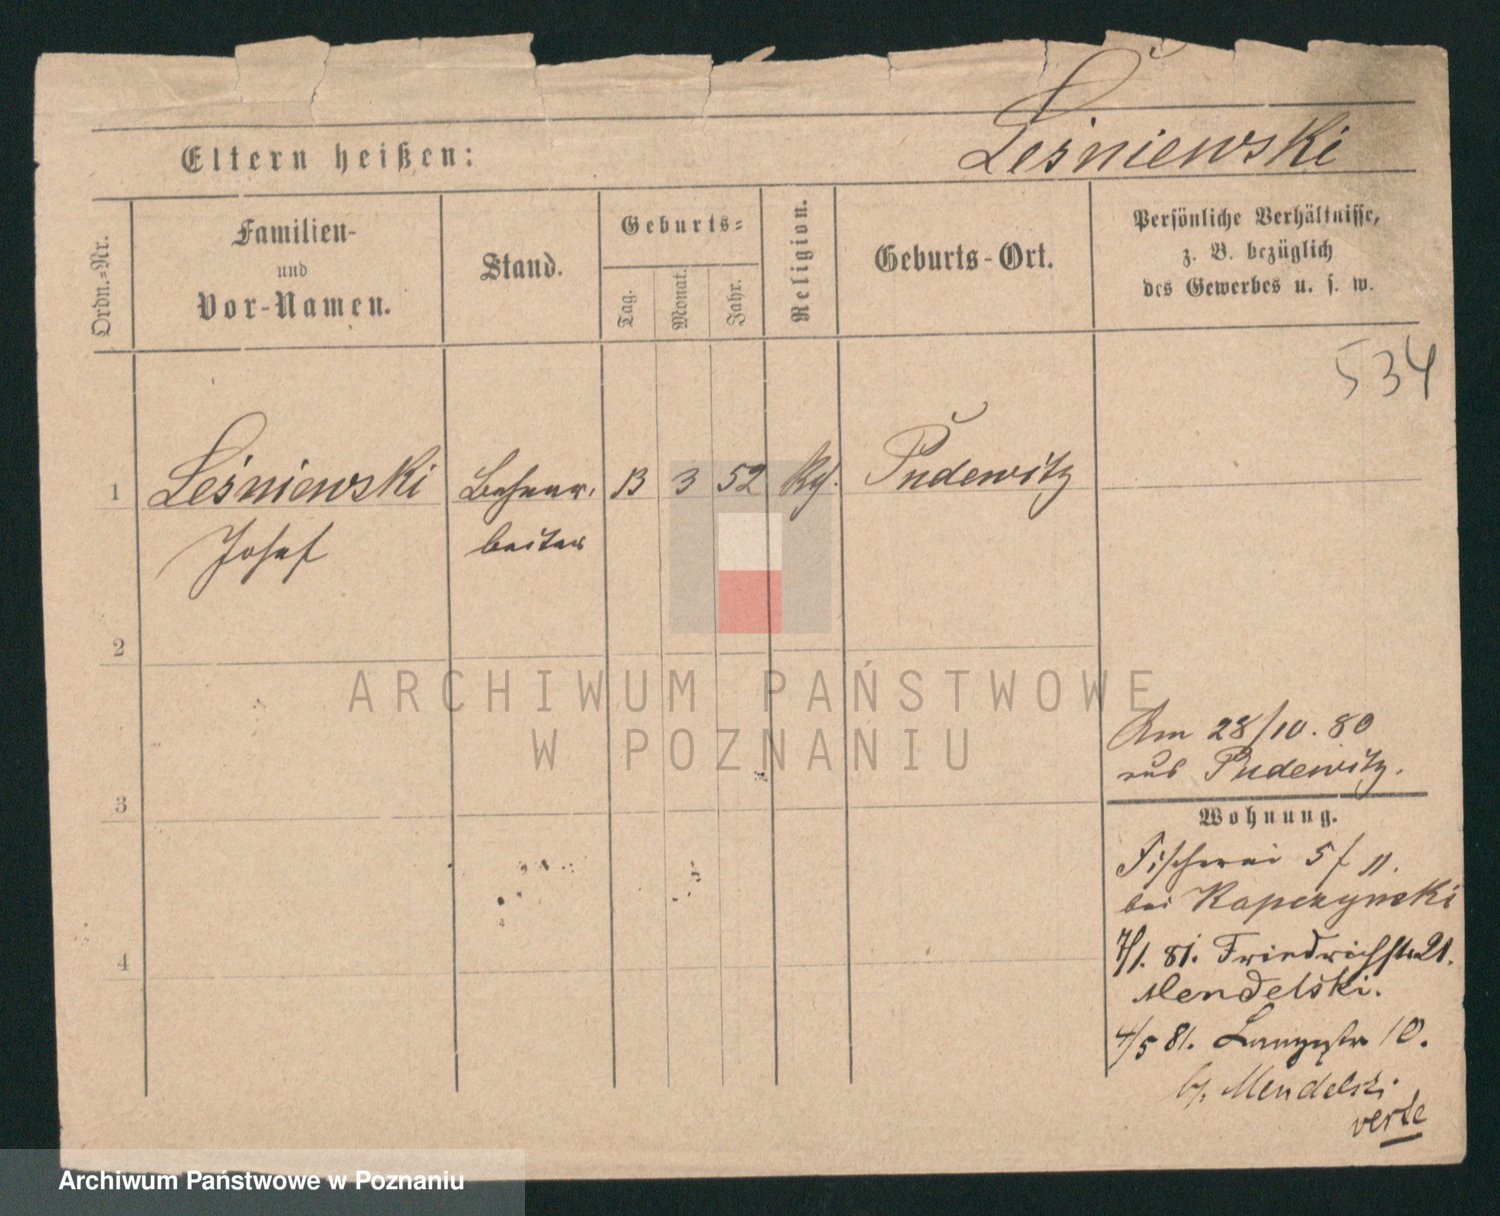 Leśniewski
Eltern heißen:
Ordn.-Nr.
Familien-
und
Vor-Namen.
Stand.
Geburts-
Tag.
Monat.
Jahr.
Religion.
Geburts-Ort.
Persönliche Verhältnisse,
z. B. bezüglich
des Gewerbes u. s. w.
534
1 Leśniewski Bahnar- 13 3 52 Pudewitz
Josef beiter
2
3
4
Am 28/10. 80
aus Pudewitz.
Wohnung.
Fischerei 5
bei Kapczynski
7/1. 81. Friedrichstr 21.
Mendelski.
4/5 81. Langestr 10.
b/. Mendelski
verte
ARCHIWUM PAŃSTWOWE
W POZNANIU
Archiwum Państwowe w Poznaniu